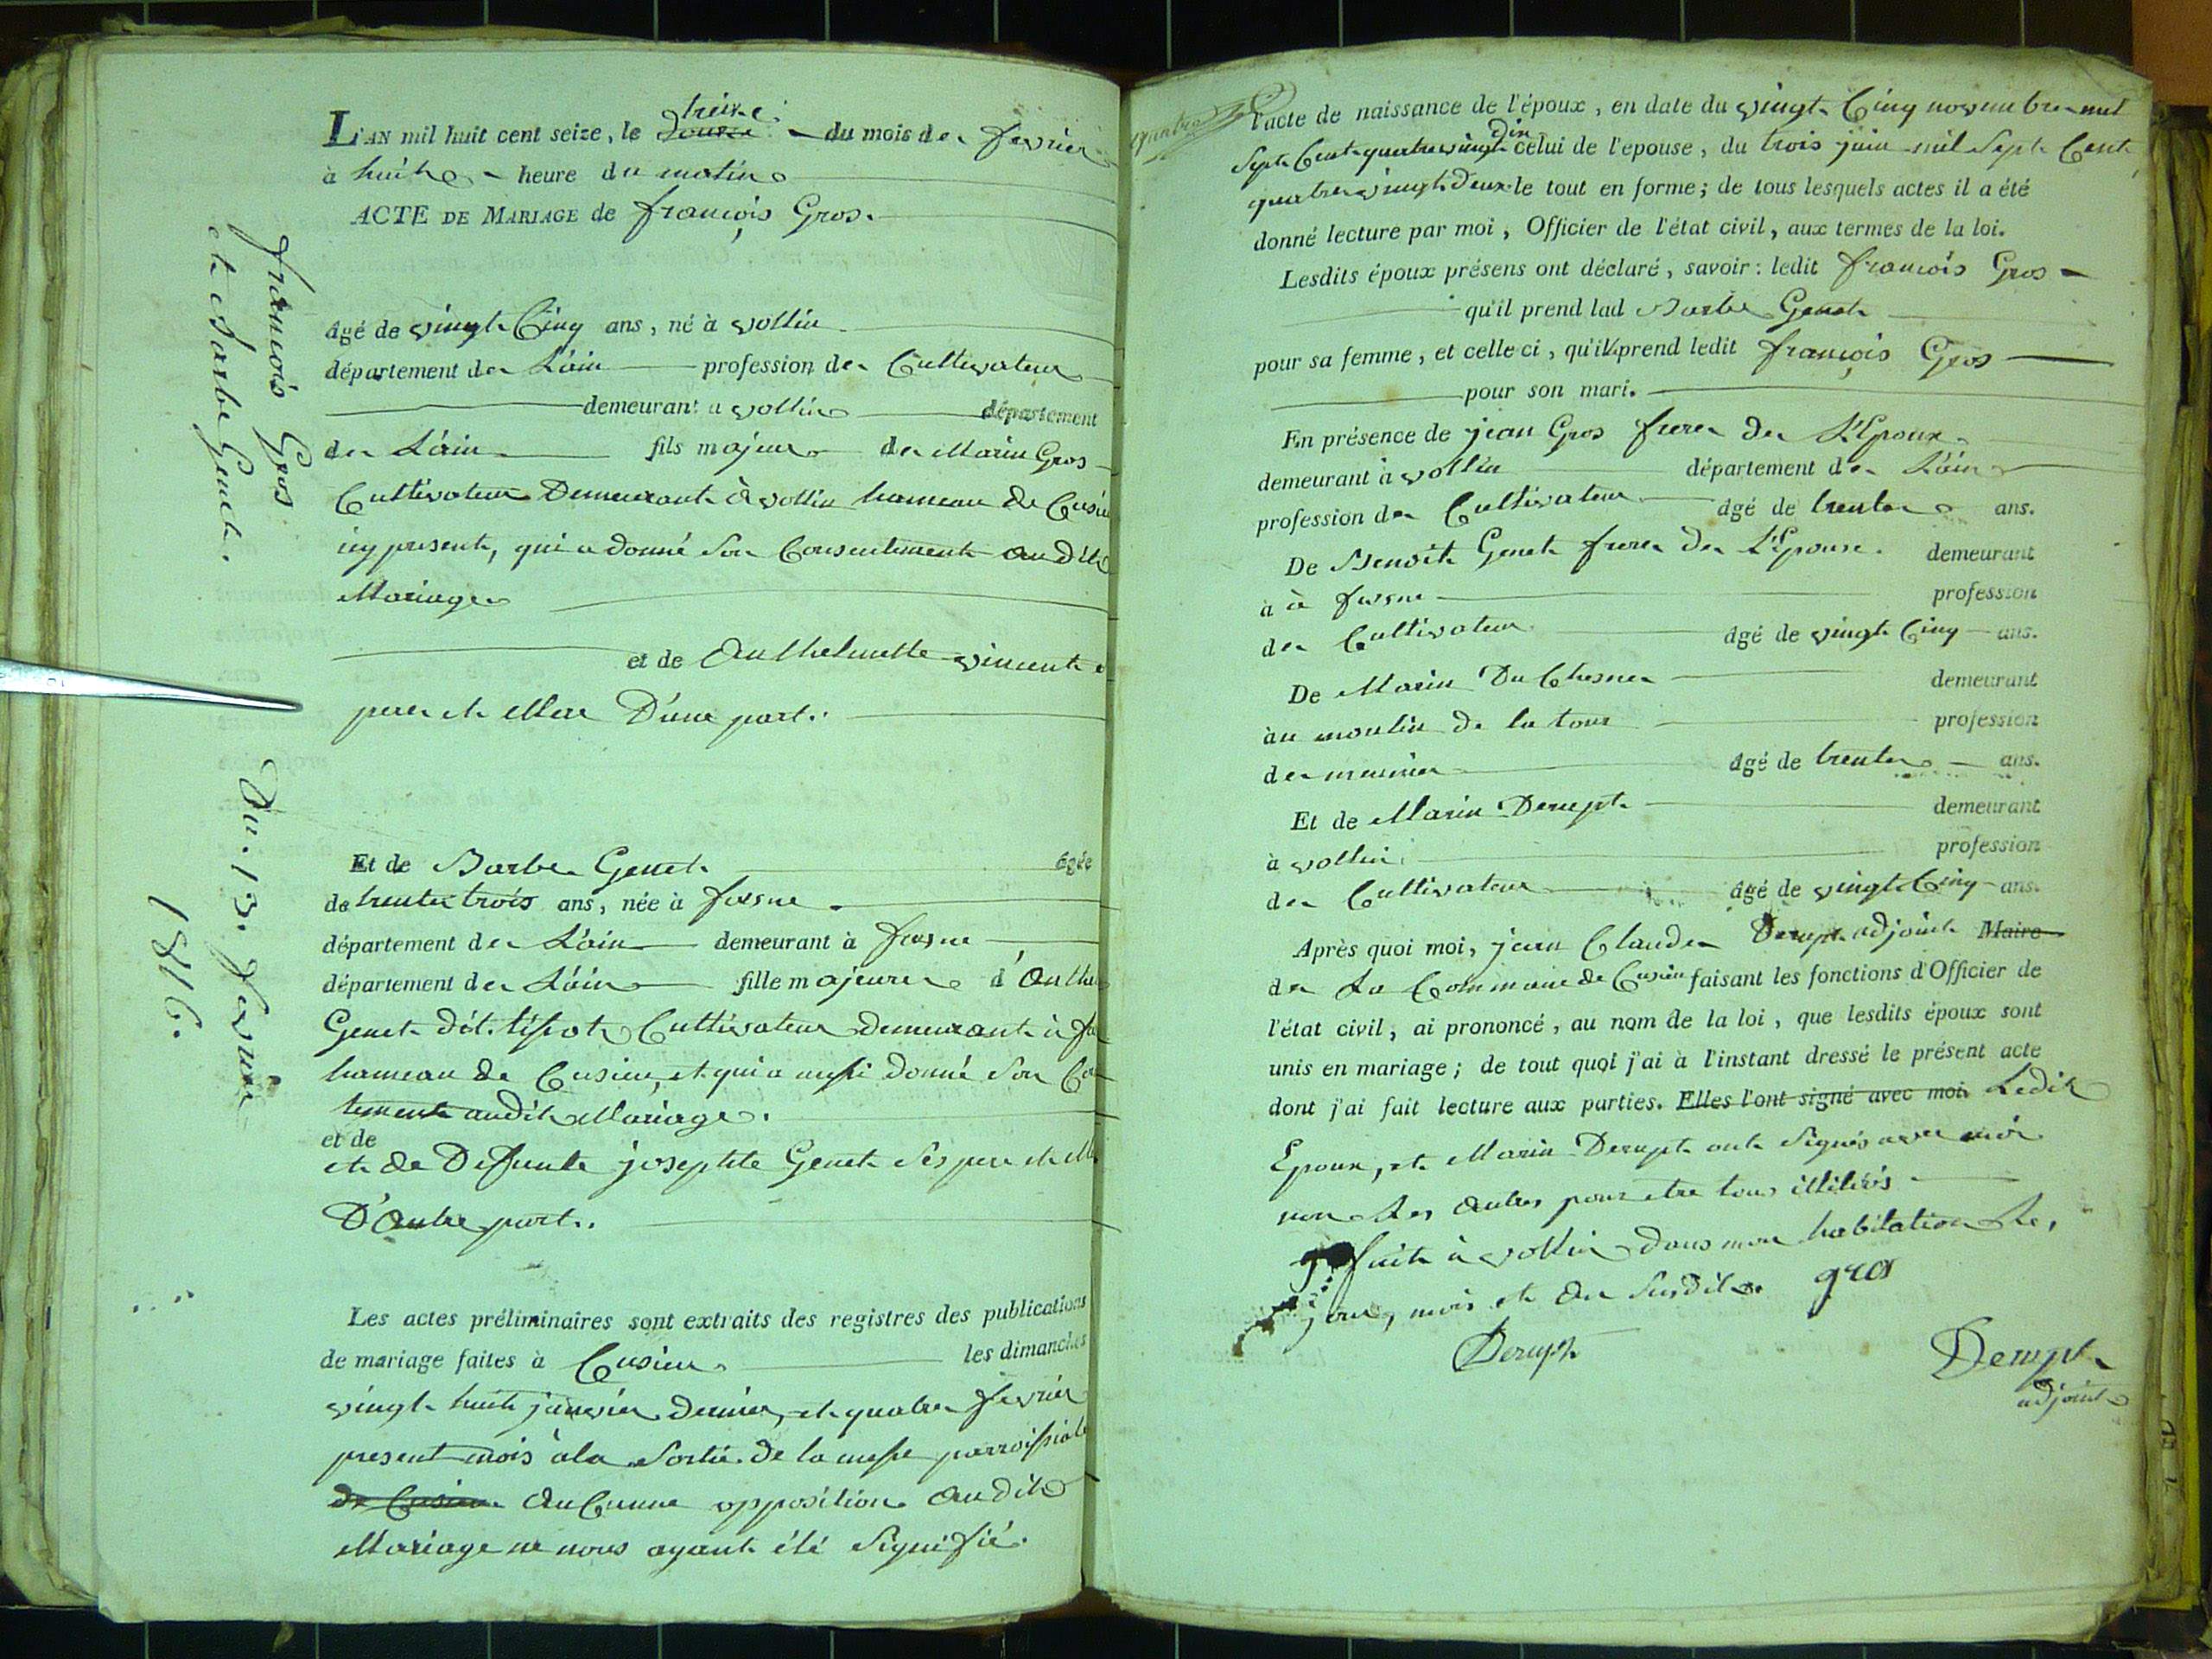 treize
L'AN mil huit cent seize, le douze du mois de fevrier
à huit heure du matin
ACTE DE MARIAGE de françois Gros.
âgé de vingt Cinq ans, né à vollin
département de L'ain profession de Cultivateur
demeurant a vollin département
de L'ain fils majeur de Marin Gros
Cultivateur Demeurant à vollin hameau de Cusieu
icy present, qui a donné Son Consentement audit
Mariage
et de Anthelmette vincent
pere et Mere D'une part.
Et de Barbe Genet âgée
de trente trois ans, née à
département de L'ain demeurant à
département de L'ain fille majeure d'
Genet dit Cultivateur Demeurant à
hameau de Cusieu, et qui a aussi donné Son
tement audit Mariage.
et de
et de Defunte josephte Genet Ses pere et
D'autre part.
Les actes préliminaires sont extraits des registres des publications
de mariage faites à Cusieu les dimanches
vingt huit janvier dernier, et quatre fevrier
present mois à la Sortie de la messe parroissiale
de Cusieu AuCunne opposition audit
Mariage ne nous ayant été Signifié.
françois Gros
et Barbe Genet.
Du 13. fevrier
1816.
l'acte de naissance de l'époux, en date du vingt Cinq novembre mil
Sept Cent quatre vingt dix celui de l'epouse, du trois juin mil Sept Cent
quatre vingt Deux le tout en forme; de tous lesquels actes il a été
donné lecture par moi, Officier de l'état civil, aux termes de la loi.
Lesdits époux présens ont déclaré, savoir: ledit françois Gros
qu'il prend lad Barbe Genet
pour sa femme, et celle ci, qu'il prend ledit françois Gros
pour son mari.
En présence de jean Gros frere de L'Epoux
demeurant à vollin département de L'ain
profession de Cultivateur âgé de trente ans.
De Benoit Genet frere de L'Epouse. demeurant
à à profession
de Cultivateur âgé de vingt Cinq ans.
De Marin Du Chesne demeurant
àu moulin de la tour profession
de meunier âgé de trente ans.
Et de Marin Derupt demeurant
à vollin profession
de Cultivateur âgé de vingt Cinq ans.
Après quoi moi, jean Claude Derupt adjoint Maire
de La Commune de Cusieu faisant les fonctions d'Officier de
l'état civil, ai prononcé, au nom de la loi, que lesdits époux sont
unis en mariage; de tout quoi j'ai à l'instant dressé le présent acte
dont j'ai fait lecture aux parties. Elles l'ont signé avec moi. Ledit
Epoux, et Marin Derupt ont Signés avec moi
non Les autres pour etre tous illiterés
fait à vollin dans mon habitation Le,
jour, mois et an Susdit. gros
Derupt
Derupt
adjoint